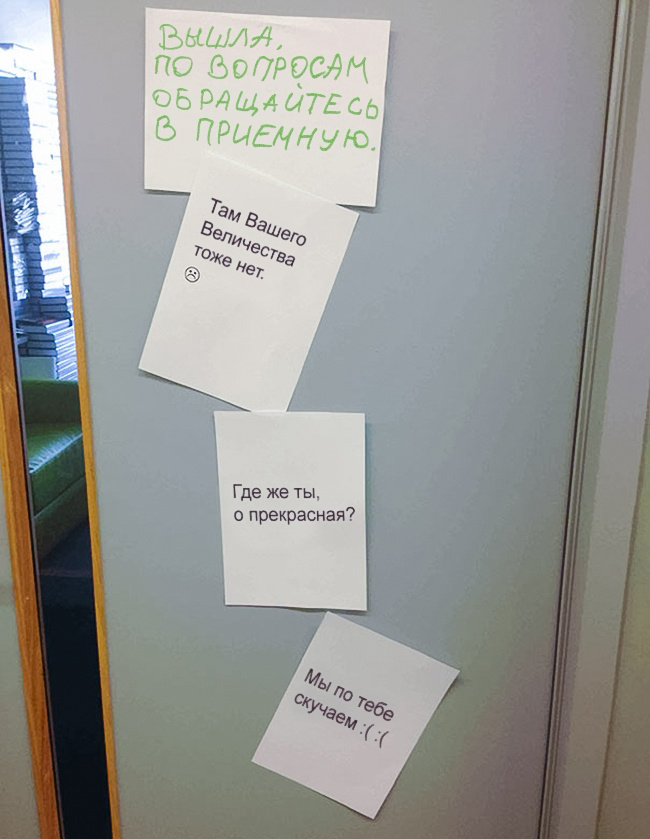 ВЫШЛА,
ПО ВОПРОСАМ
ОБРАЩАЙТЕСЬ
В ПРИЕМНУЮ.
Там Вашего
Величества
тоже нет.
☹
Где же ты,
о прекрасная?
Мы по тебе
скучаем :( :(